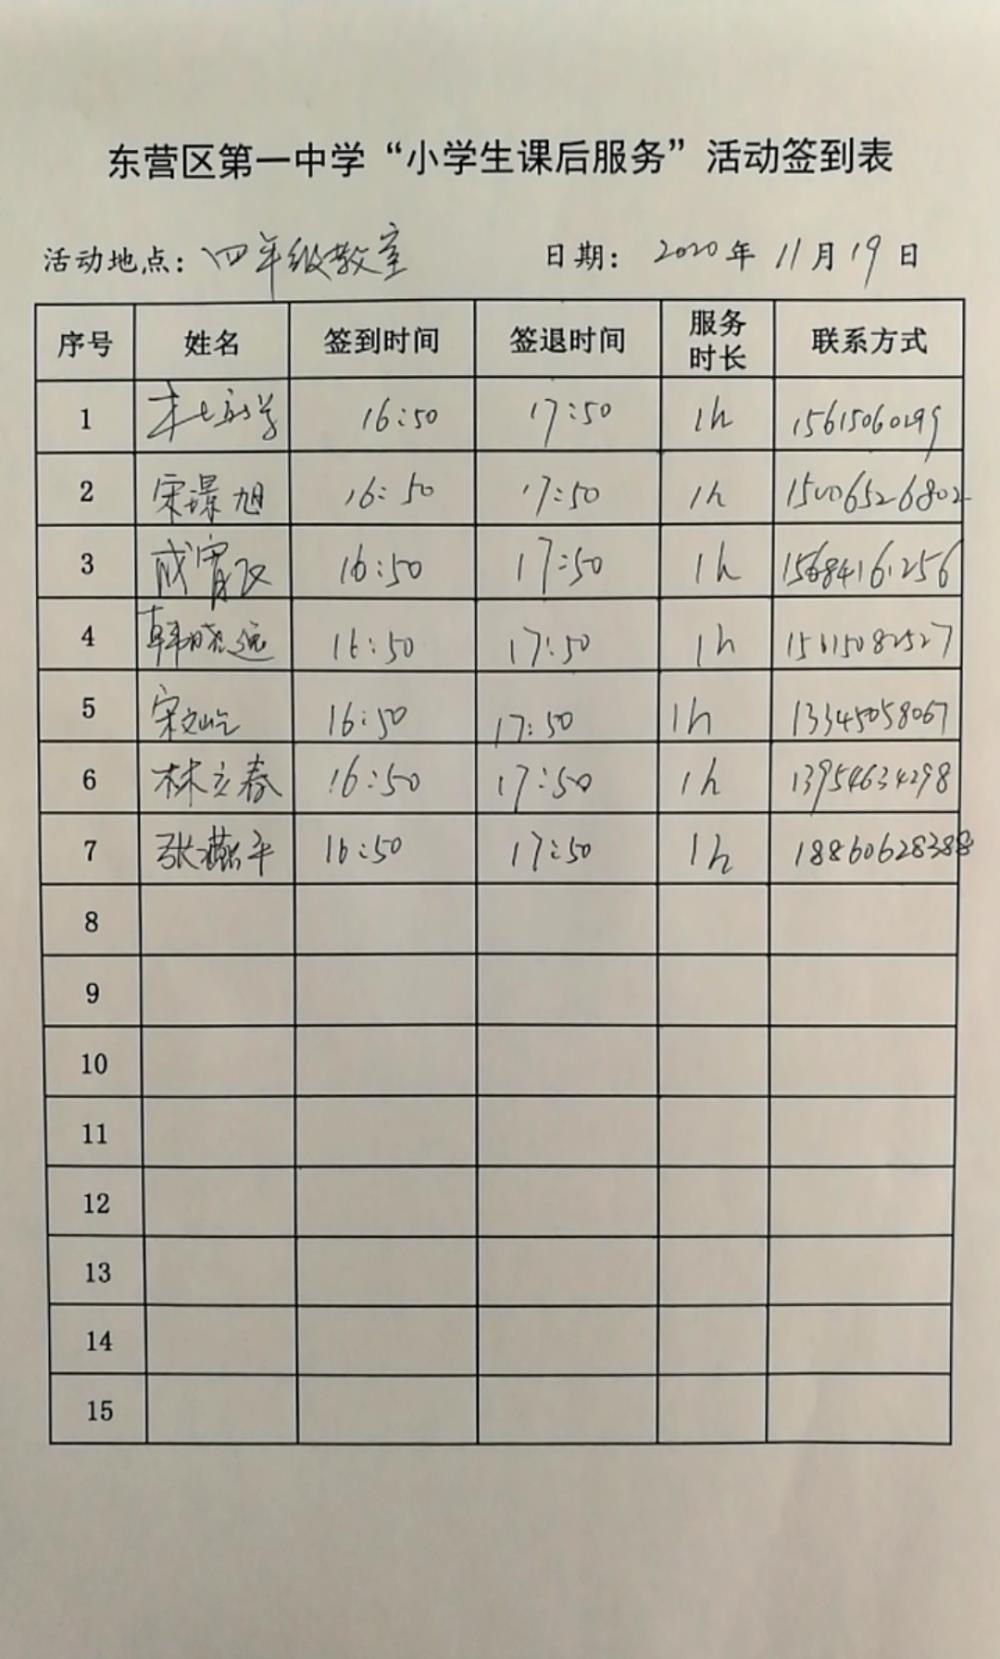 东营区第一中学“小学生课后服务”活动签到表
活动地点：四年级教室 日期：2020年11月19日
序号 姓名 签到时间 签退时间 服务时长 联系方式
1 16:50 17:50 1h 15615060199
2 宋璟旭 16:50 17:50 1h 15006526802
3 16:50 17:50 1h 15684161256
4 韩晓逸 16:50 17:50 1h 15615082527
5 宋文屹 16:50 17:50 1h 13345058067
6 林立春 16:50 17:50 1h 13954634298
7 张燕平 16:50 17:50 1h 18860628388
8
9
10
11
12
13
14
15